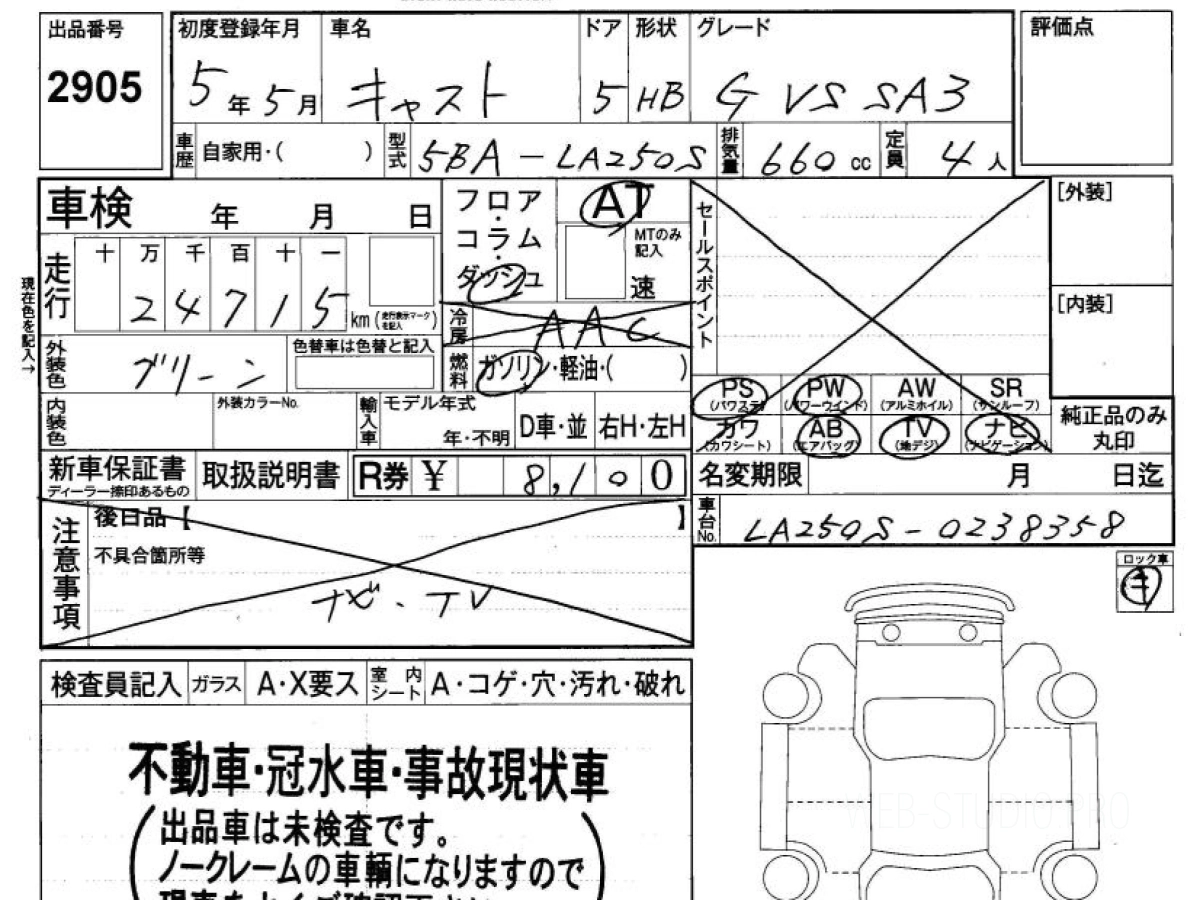 出品番号 初度登録年月 車名 ドア 形状 グレード 評価点
2905 5年5月 キャスト 5 HB G VS SA3
車歴 自家用・( ) 型式 5BA-LA250S 排気量 660cc 定員 4人
車検 年 月 日 フロア・コラム・ダッシュ AT セールスポイント [外装]
MTのみ記入
速
走行 十 万 千 百 十 一
24715 km (走行表示マークを記入)
現在色を記入→
冷房 AAC
[内装]
外装色 グリーン 色替車は色替と記入 燃料 ガソリン・軽油・( )
PS (パワステ) PW (パワーウインド) AW (アルミホイル) SR (サンルーフ)
内装色 外装カラーNo. 輸入車 モデル年式 年・不明 D車・並 右H・左H
カワ (カワシート) AB (エアバッグ) TV (地デジ) ナビ (ナビゲーション) 純正品のみ丸印
新車保証書 ディーラー捺印あるもの 取扱説明書 R券 ¥ 8,100 名変期限 月 日迄
注意事項 後日品【 】 車台No. LA250S-0238358
不具合箇所等
ナビ・TV
ロック車
キ
検査員記入 ガラス A・X要ス 室内シート A・コゲ・穴・汚れ・破れ
不動車・冠水車・事故現状車
(出品車は未検査です。
ノークレームの車輌になりますので
WEB-STUDIO.PRO